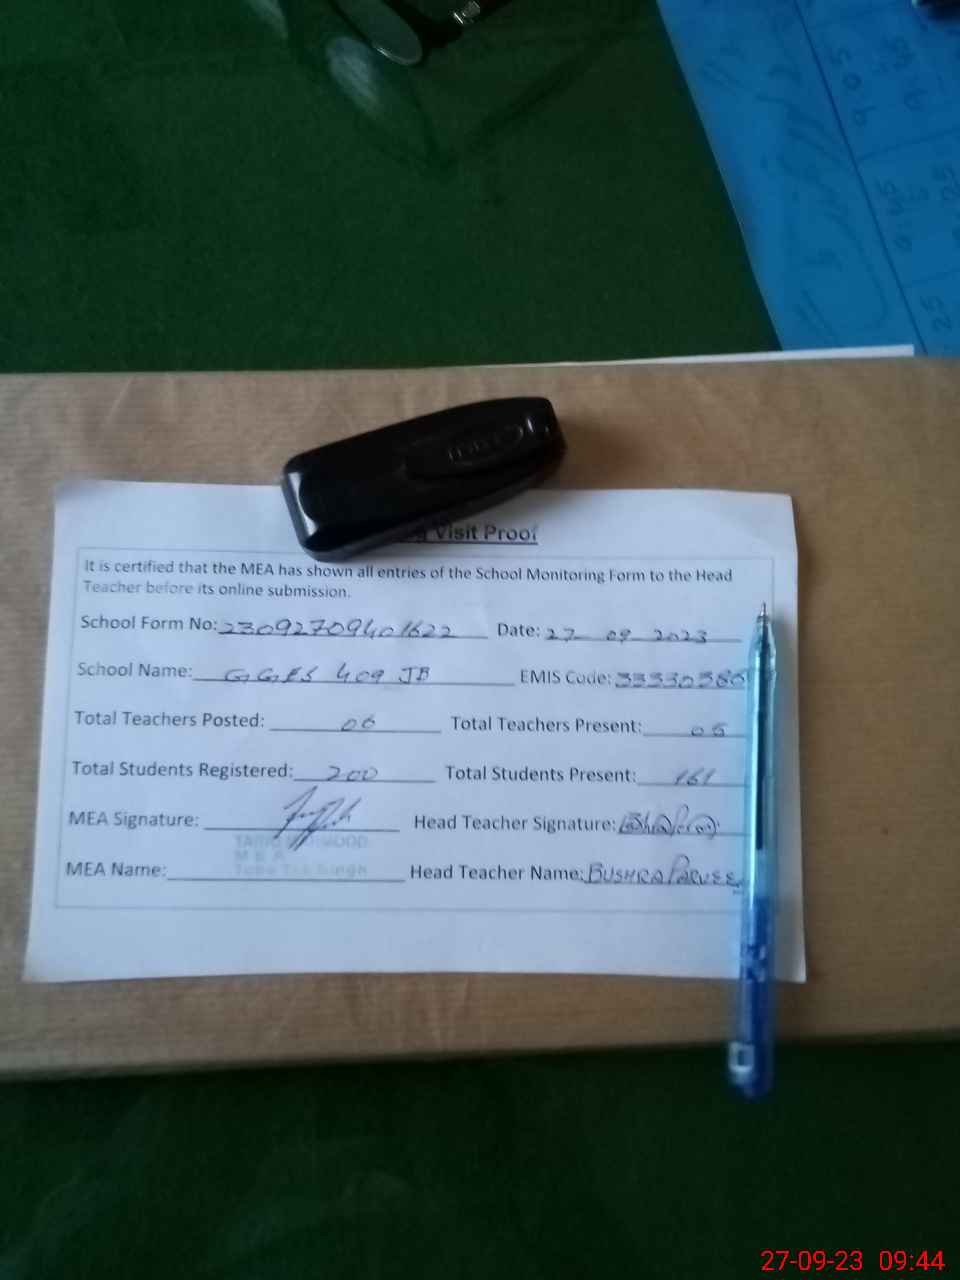 Visit Proof
It is certified that the MEA has shown all entries of the School Monitoring Form to the Head
Teacher before its online submission.
School Form No: 23092709401622 Date: 27-09-2023
School Name: GGES 409 JB EMIS Code: 33330386
Total Teachers Posted: 06 Total Teachers Present: 05
Total Students Registered: 200 Total Students Present: 161
MEA Signature: Head Teacher Signature:
M E A
Toba Tek Singh
MEA Name: Head Teacher Name: BUSHRA PARVEEN
9:45
25
27-09-23 09:44